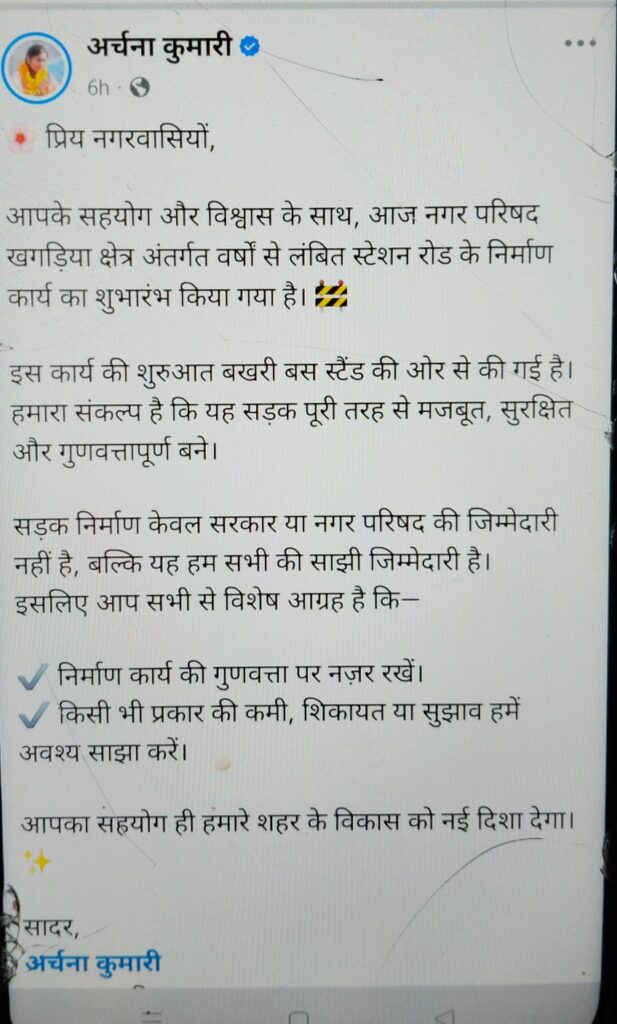 अर्चना कुमारी
6h ·
प्रिय नगरवासियों,
आपके सहयोग और विश्वास के साथ, आज नगर परिषद
खगड़िया क्षेत्र अंतर्गत वर्षों से लंबित स्टेशन रोड के निर्माण
कार्य का शुभारंभ किया गया है। 🚧
इस कार्य की शुरुआत बखरी बस स्टैंड की ओर से की गई है।
हमारा संकल्प है कि यह सड़क पूरी तरह से मजबूत, सुरक्षित
और गुणवत्तापूर्ण बने।
सड़क निर्माण केवल सरकार या नगर परिषद की जिम्मेदारी
नहीं है, बल्कि यह हम सभी की साझी जिम्मेदारी है।
इसलिए आप सभी से विशेष आग्रह है कि—
✔️ निर्माण कार्य की गुणवत्ता पर नज़र रखें।
✔️ किसी भी प्रकार की कमी, शिकायत या सुझाव हमें
अवश्य साझा करें।
आपका सहयोग ही हमारे शहर के विकास को नई दिशा देगा।
✨
सादर,
अर्चना कुमारी